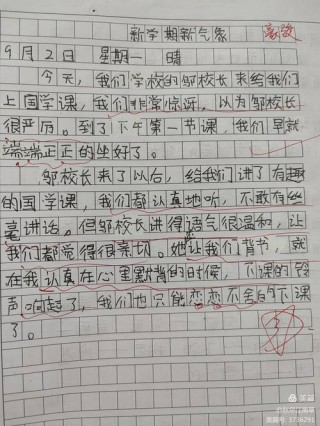 新学期新气象
9月2日 星期一 晴
今天，我们学校的邹校长来给我们
上国学课，我们非常惊讶，以为邹校长
很严厉。到了下午第一节课，我们早就
端端正正的坐好了。
邹校长来了以后，给我们讲了有趣
的国学课，我们都认真地听，不敢有丝
毫讲话。但邹校长讲得语气很温和，让
我们都觉得很亲切。她让我们背书，就
在我认真在心里默背的时候，下课的铃
声响起了，我们也只能恋恋不舍的下课
了。
美篇